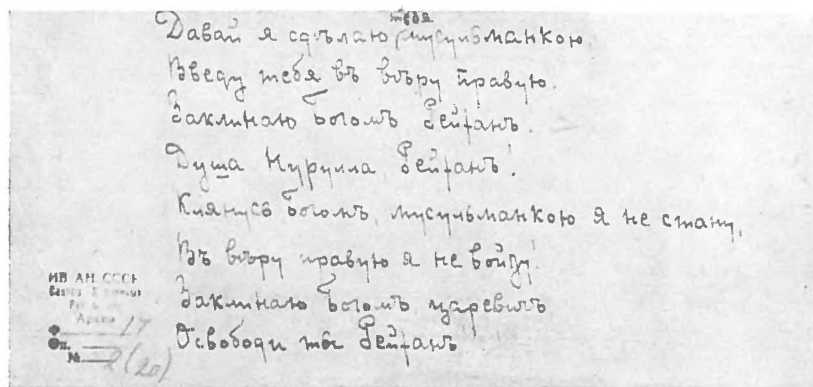 тебя
Давай я сдѣлаю мусульманкою.
Введу тебя въ вѣру правую.
Заклинаю Богомъ Рейханъ.
Душа Нурулла, Рейханъ!
Клянусь Богомъ, мусульманкою я не стану,
Въ вѣру правую я не войду.
Заклинаю Богомъ, царевичъ
Освободи ты Рейханъ
ИВ АН СССР
Архив
17
Оп.
№ 2(20)